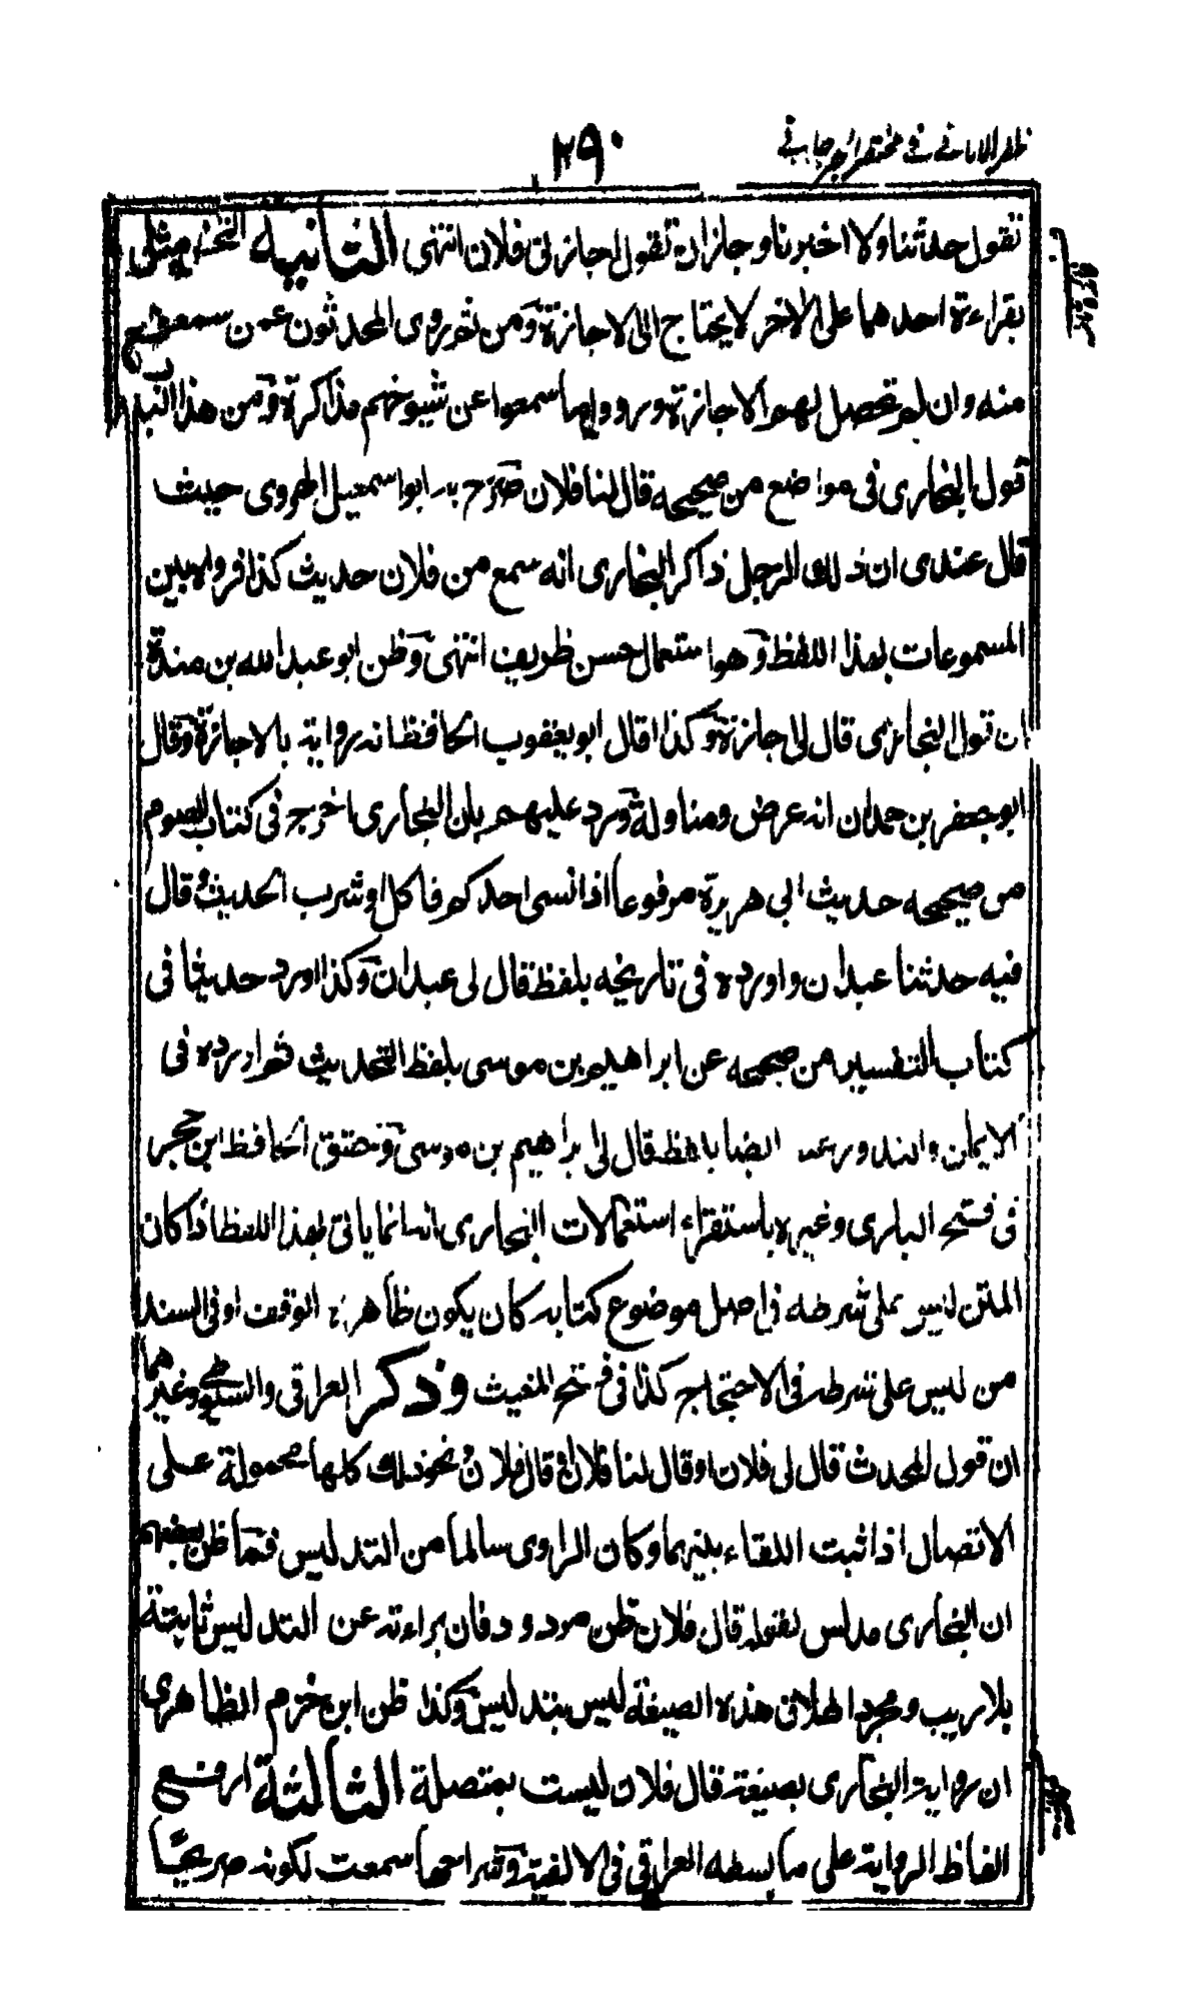 ظفر الامانی فی مختصر الجرجانی
۲۹۰
تقول حدثنا ولا اخبرنا وجاز ان تقول اجاز لی فلان انتهی الثانیة التحدیث
بقراءة احدهما علی الاخر لا یحتاج الی الاجازة ومن ثم روی المحدثون عمن سمعوا
منه وان لم تحصل لهم الاجازة ورووا ما سمعوا عن شیوخهم مذاکرة ومن هذا القبیل
قول البخاری فی مواضع من صحیحه قال لنا فلان صرح به ابو اسمعیل الهروی حیث
قال عندی ان ذلك الرجل ذاکر البخاری انه سمع من فلان حدیث کذا فرواه بین
المسموعات بهذا اللفظ وهو استعمال حسن ظریف انتهی وظن ابو عبد الله بن مندة
ان قول البخاری قال لی اجازة وکذا قال ابو یعقوب الحافظ انه روایة بالاجازة وقال
ابو جعفر بن حمدان انه عرض ومناولة ورد علیهم بان البخاری اخرج فی کتاب الصوم
من صحیحه حدیث ابی هریرة مرفوعا اذا نسی احدکم فاکل او شرب الحدیث قال
فیه حدثنا عبدان واورده فی تاریخه بلفظ قال لی عبدان وکذا اورد حدیثا فی
کتاب التفسیر من صحیحه عن ابراهیم بن موسی بلفظ التحدیث ثم اورده فی
الایمان والنذور عنه ایضا بلفظ قال لی ابراهیم بن موسی وحقق الحافظ ابن حجر
فی فتح الباری وغیره باستقراء استعمالات البخاری انه انما یاتی بهذا اللفظ اذا کان
المتن لیس علی شرطه فی اصل موضوع کتابه کان یکون ظاهره الوقف او فی السند
من لیس علی شرطه فی الاحتجاج کذا فی فتح المغیث وذکر العراقی والسخاوی وغیرهما
ان قول المحدث قال لی فلان او قال لنا فلان او قال فلان ونحو ذلك کلها محمولة علی
الاتصال اذا ثبت اللقاء بینهما وکان الراوی سالما من التدلیس فما ظن بعضهم
ان البخاری مدلس لقوله قال فلان ظن مردود فان براءته عن التدلیس ثابتة
بلا ریب ومجرد اطلاق هذه الصیغة لیس بتدلیس وکذا ظن ابن حزم الظاهری
ان روایة البخاری بصیغة قال فلان لیست بمتصلة الثالثة ارفع
الفاظ الروایة علی ما بسطه العراقی فی الالفیة وشراحها سمعت لکونه صریحا